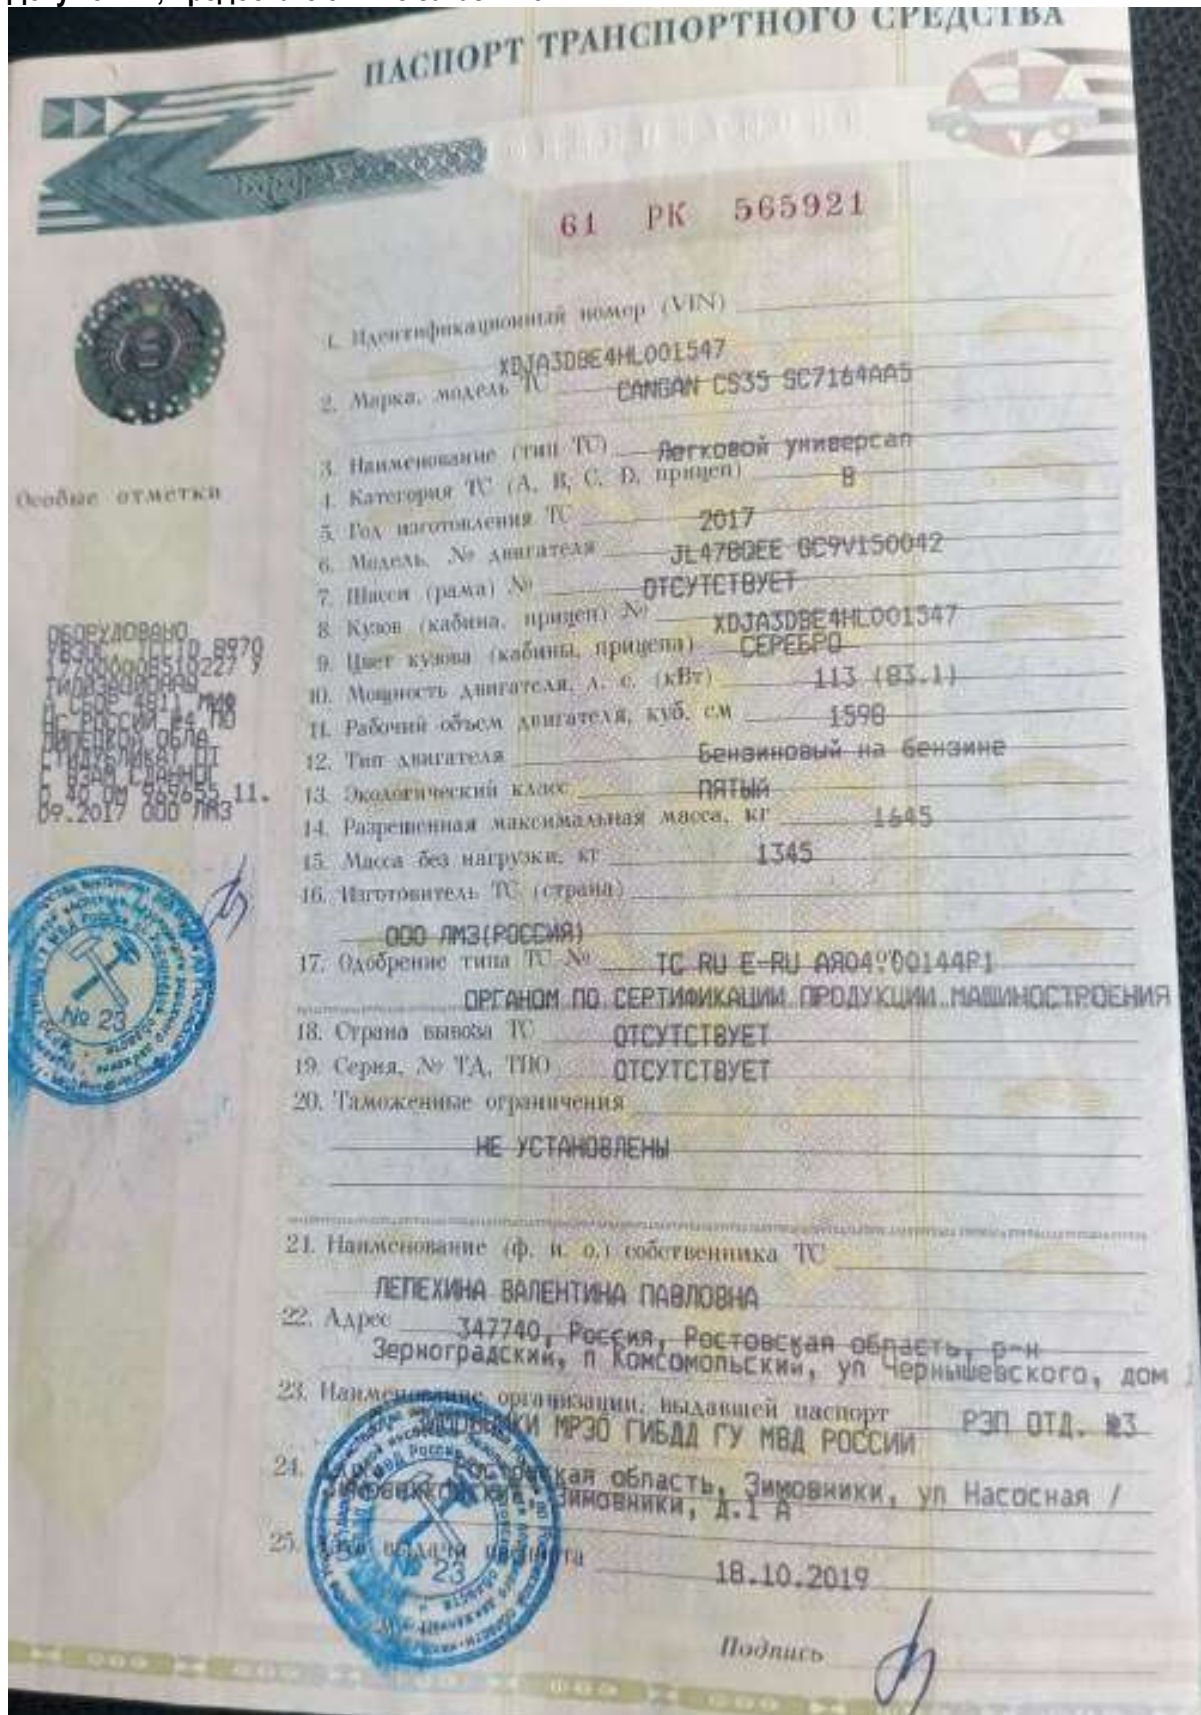 ПАСПОРТ ТРАНСПОРТНОГО СРЕДСТВА
61 РК 565921
1. Идентификационный номер (VIN)
XDJA3DBE4HL001547
2. Марка, модель ТС CANGAN CS35 SC7164AA5
3. Наименование (тип ТС) Легковой универсал
4. Категория ТС (А, В, С, D, прицеп) В
Особые отметки
5. Год изготовления ТС 2017
6. Модель, № двигателя JL478QEE GC9V150042
7. Шасси (рама) № ОТСУТСТВУЕТ
8. Кузов (кабина, прицеп) № XDJA3DBE4HL001547
9. Цвет кузова (кабины, прицепа) СЕРЕБРО
10. Мощность двигателя, л. с. (кВт) 113 (83.1)
11. Рабочий объем двигателя, куб. см 1598
12. Тип двигателя Бензиновый на бензине
13. Экологический класс ПЯТЫЙ
14. Разрешенная максимальная масса, кг 1645
15. Масса без нагрузки, кг 1345
16. Изготовитель ТС (страна)
ООО ЛМЗ(РОССИЯ)
17. Одобрение типа ТС № ТС RU E-RU АЯ04.00144Р1
ОРГАНОМ ПО СЕРТИФИКАЦИИ ПРОДУКЦИИ МАШИНОСТРОЕНИЯ
18. Страна вывоза ТС ОТСУТСТВУЕТ
19. Серия, № ТД, ТПО ОТСУТСТВУЕТ
20. Таможенные ограничения
НЕ УСТАНОВЛЕНЫ
ОБОРУДОВАНО
ЛИПЕЦКОЙ ОБЛА
СТИДУБЛИКАТ ПТ
С ВЗАМ СДАННОГ
О 40 ОМ 969655 11.
09.2017 ООО ЛМЗ
№ 23
21. Наименование (ф. и. о.) собственника ТС
ЛЕПЕХИНА ВАЛЕНТИНА ПАВЛОВНА
22. Адрес 347740, Россия, Ростовская область, р-н
Зерноградский, п Комсомольский, ул Чернышевского, дом
23. Наименование организации, выдавшей паспорт РЭП ОТД. №3
ЗИМОВНИКИ МРЭО ГИБДД ГУ МВД РОССИИ
24. область, Зимовники, ул Насосная /
Зимовники, д.1 А
25. выдачи паспорта 18.10.2019
№ 23
Подпись